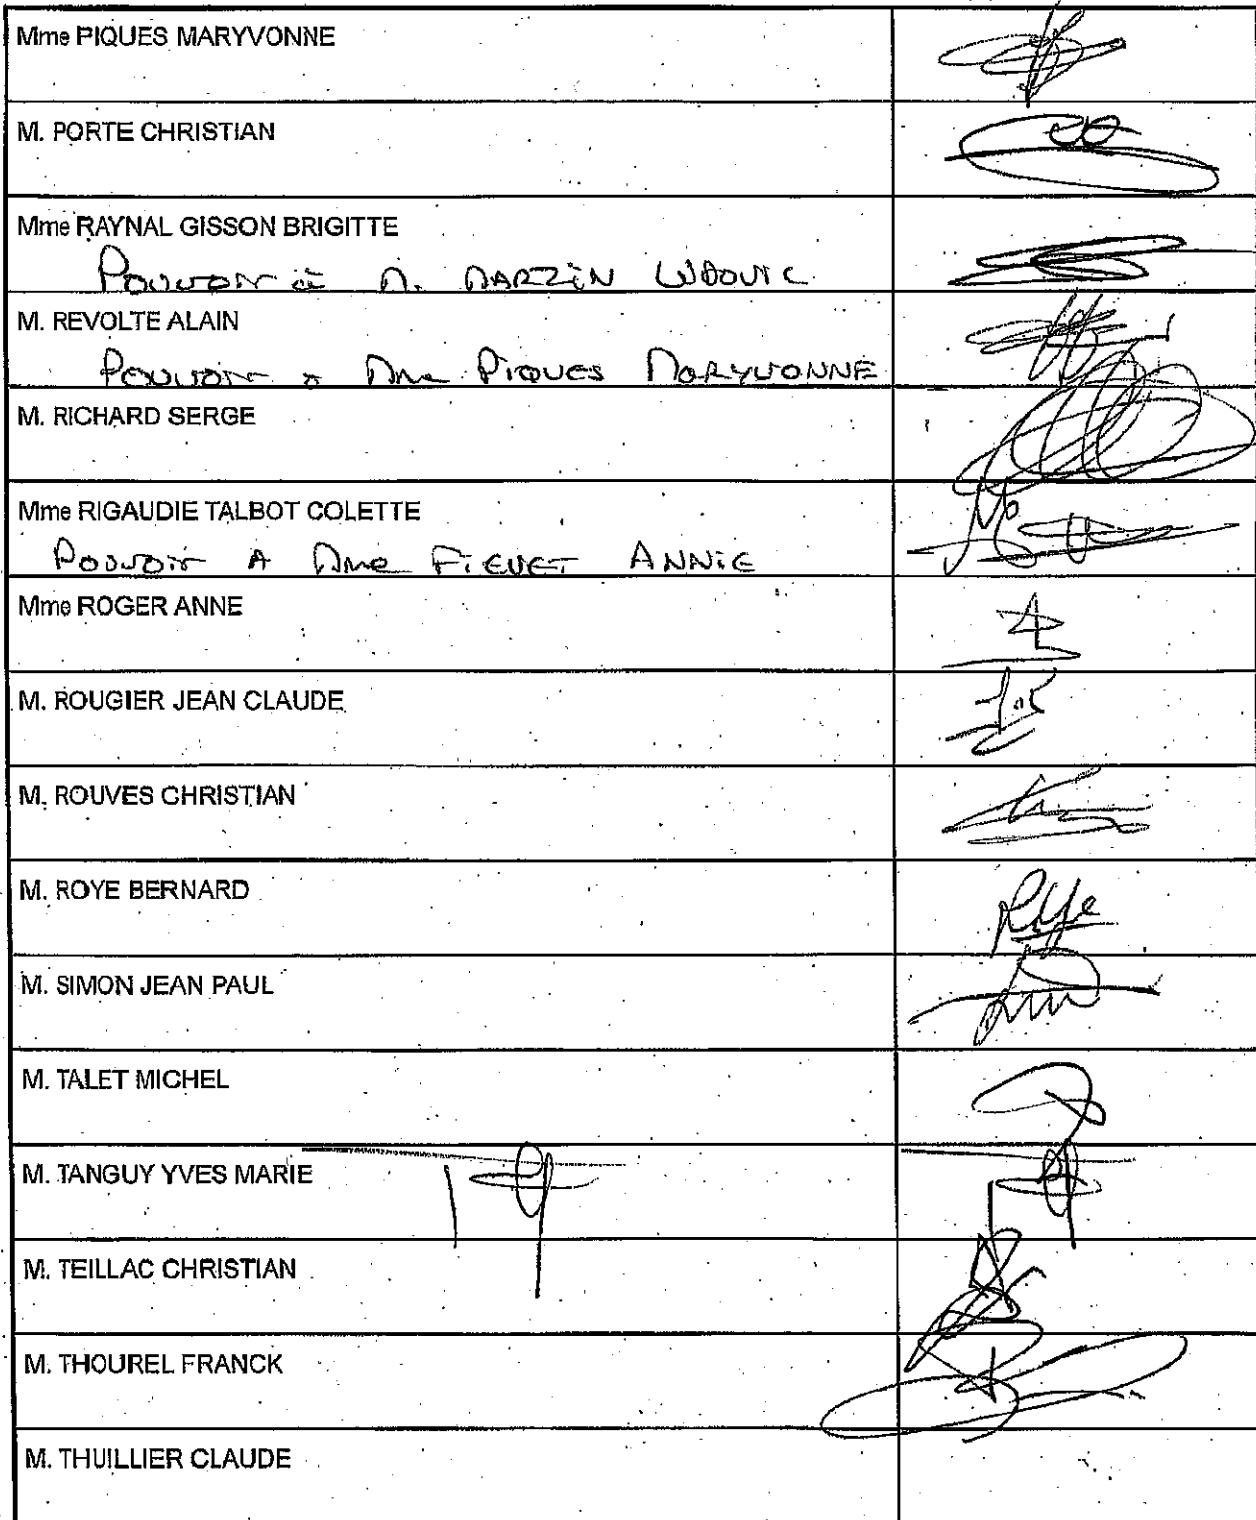 Mme PIQUES MARYVONNE
M. PORTE CHRISTIAN
Mme RAYNAL GISSON BRIGITTE
Pouvoir à M. MARZIN LUDOVIC
M. REVOLTE ALAIN
Pouvoir à Mme PIQUES MARYVONNE
M. RICHARD SERGE
Mme RIGAUDIE TALBOT COLETTE
Pouvoir A Mme FIEVET ANNIE
Mme ROGER ANNE
M. ROUGIER JEAN CLAUDE
M. ROUVES CHRISTIAN
M. ROYE BERNARD
Roye
M. SIMON JEAN PAUL
M. TALET MICHEL
M. TANGUY YVES MARIE
M. TEILLAC CHRISTIAN
M. THOUREL FRANCK
M. THUILLIER CLAUDE